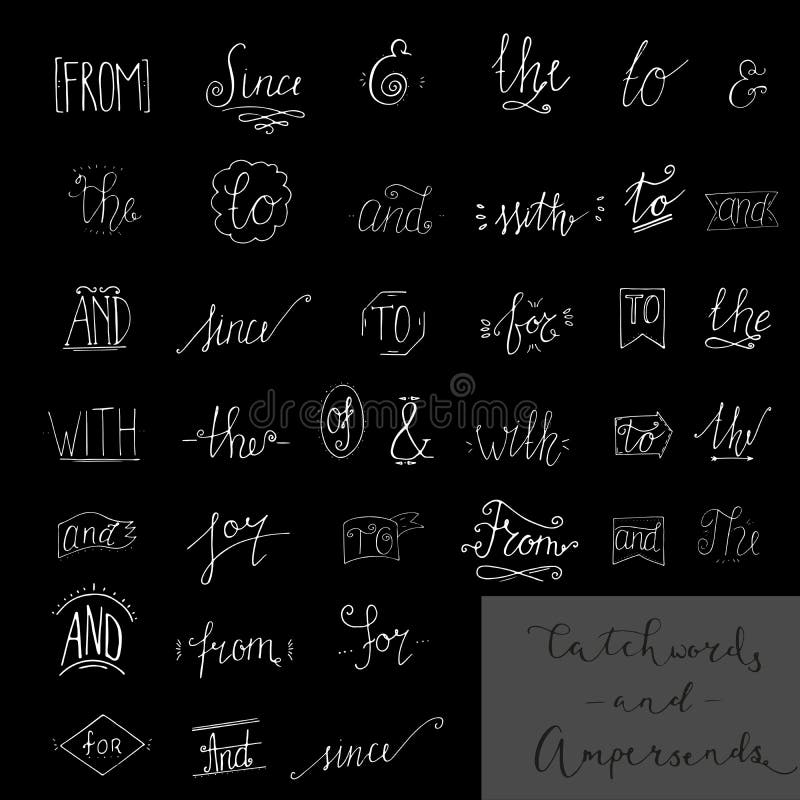 [FROM] Since & the to &
the to and with to and
AND since TO for TO the
WITH -the- of & with to the
and for TO From and The
AND from ..for...
for And since
Catchwords
- and -
Ampersends
dreamstime